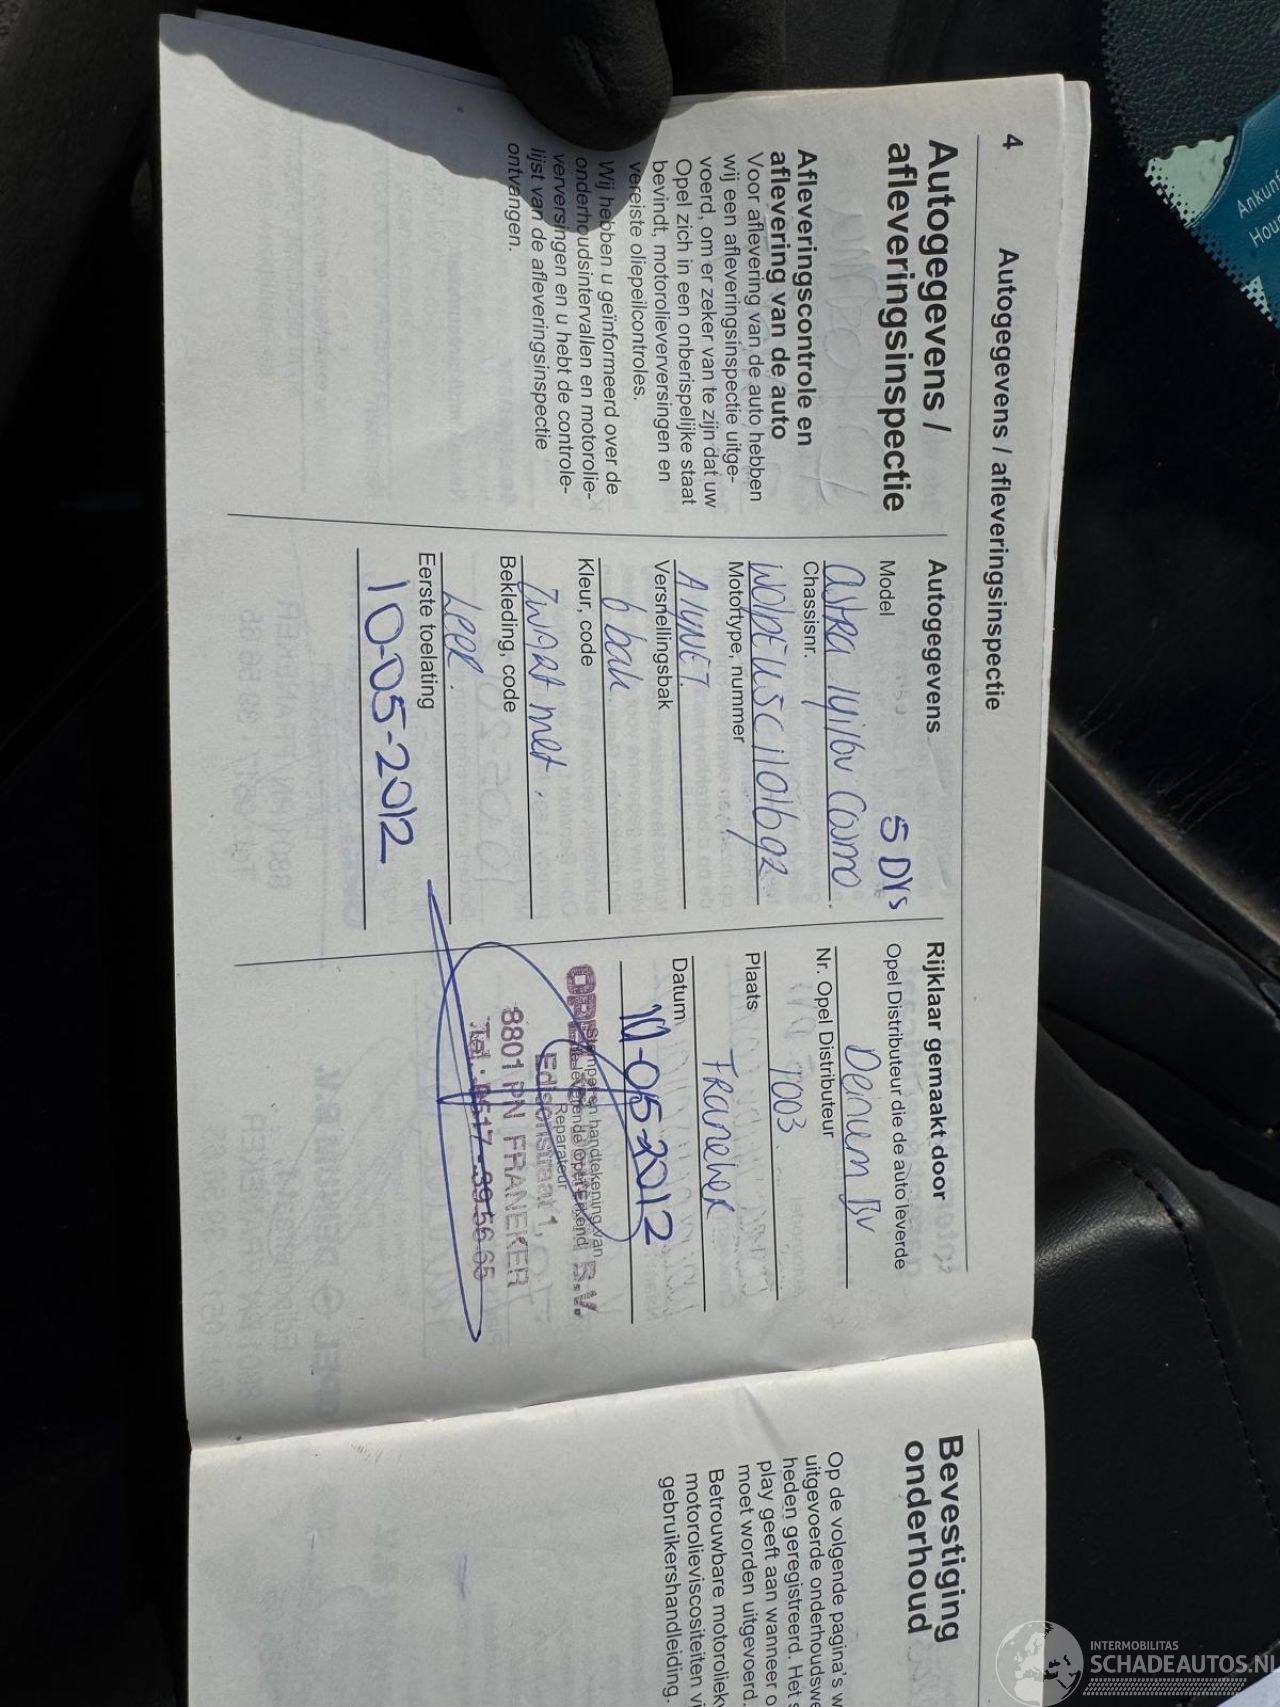 4
Autogegevens / afleveringsinspectie
Autogegevens /
afleveringsinspectie
Afleveringscontrole en
aflevering van de auto
Voor aflevering van de auto hebben
wij een afleveringsinspectie uitge-
voerd, om er zeker van te zijn dat uw
Opel zich in een onberispelijke staat
bevindt, motorolieverversingen en
vereiste oliepeilcontroles.
Wij hebben u geïnformeerd over de
onderhoudsintervallen en motorolie-
verversingen en u hebt de controle-
lijst van de afleveringsinspectie
ontvangen.
Autogegevens
Model
5 DYS
Astra 1.4 16v Cosmo
Chassisnr.
Motortype, nummer
A14NET
Versnellingsbak
6 bak
Kleur, code
Zwart met.
Bekleding, code
Leer.
Eerste toelating
10-05-2012
Rijklaar gemaakt door
Opel Distributeur die de auto leverde
Deinum BV
Nr. Opel Distributeur
Plaats
Franeker
Datum
10-05-2012
Stempel en handtekening van
de leverende Opel Erkend
Reparateur
B.V.
Edisonstraat 1,
8801 PN FRANEKER
Tel.: 0517 - 39 56 65
Bevestiging
onderhoud
Op de volgende pagina's w
uitgevoerde onderhoudswe
heden geregistreerd. Het s
play geeft aan wanneer o
moet worden uitgevoerd.
Betrouwbare motoroliekw
motorolieviscositeiten vi
gebruikershandleiding.
Ankunf
Hou
INTERMOBILITAS
SCHADEAUTOS.NL